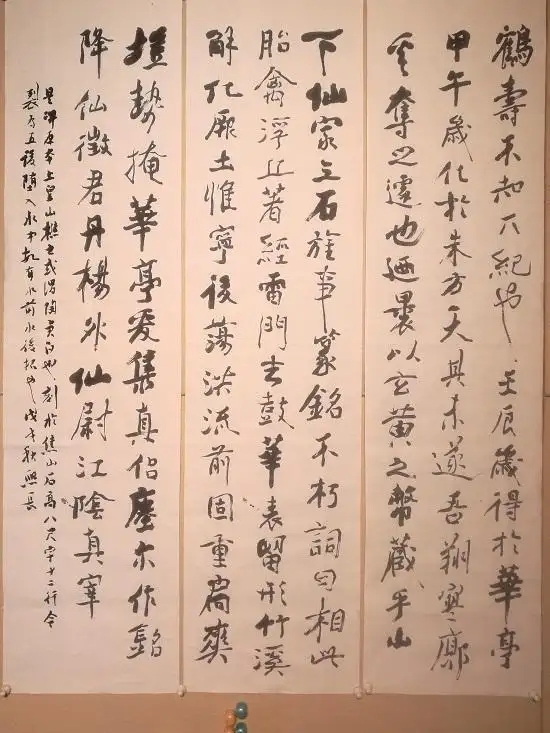 鶴壽不知其紀也壬辰歲得於華亭
甲午歲化於朱方天其未遂吾翔寥廓
奚奪之遽也廼裹以玄黃之幣藏乎山
下仙家立石旌事篆銘不朽詞曰相此
胎禽浮丘著經雷門去鼓華表留形竹溪
解化厥土惟寧後蕩洪流前固重扃爽
塏勢掩華亭爰集真侶瘞尔作銘
降仙徵君丹楊外仙尉江陰真宰
是碑原本上皇山樵書或謂陶貞白也刻於焦山石高八尺字十二行今
裂為五後墮入水中故有水前水後拓也戊午秋